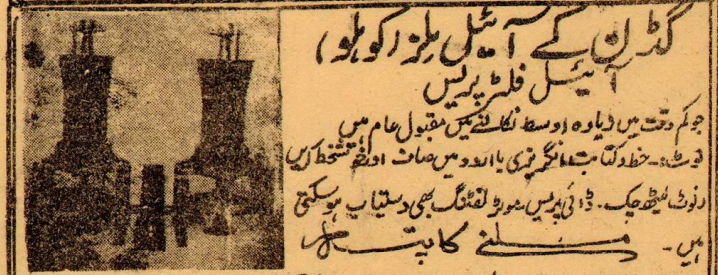 گڈن کے آئیل ملز (کوہلو)
آئیل فلٹر پریس
جو کم وقت میں زیادہ اوسط نکالنے میں مقبول عام ہیں
نوٹ:۔ خط و کتابت انگریزی یا اردو میں صاف اور خوشخط کریں
نوٹ لیٹھ چک۔ ڈائی پریس موٹر لفٹنگ بھی دستیاب ہوسکتی
ہیں۔ ملنے کا پتہ